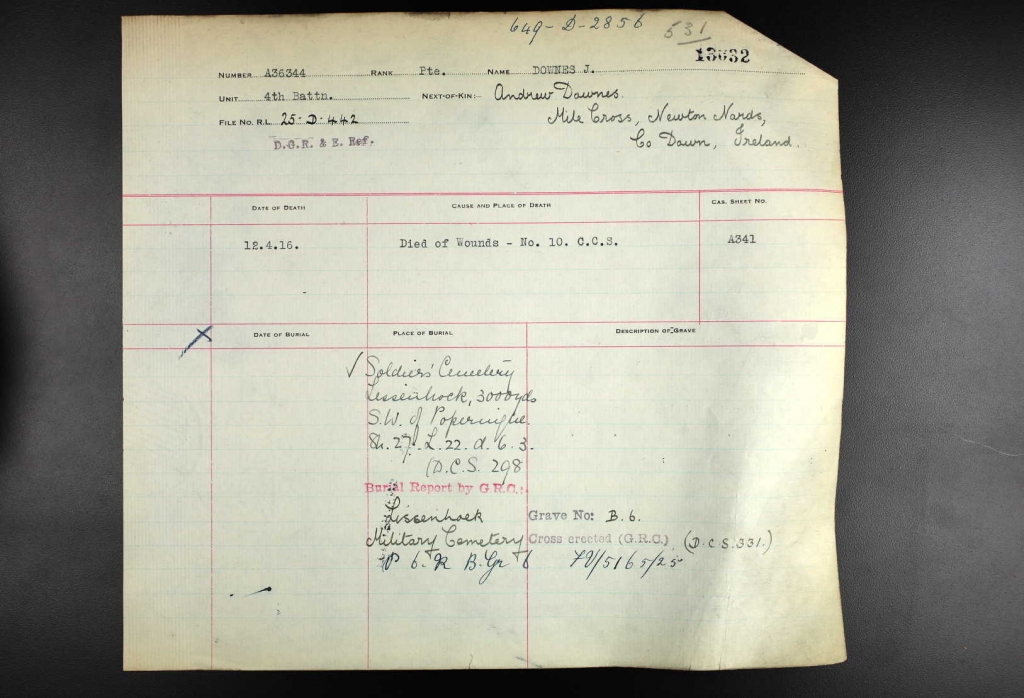 649-D-2856 531
13032
NUMBER A36344 RANK Pte. NAME DOWNES J.
UNIT 4th Battn. NEXT-OF-KIN:- Andrew Downes.
Mile Cross, Newton Nards,
FILE NO. R.L. 25-D-442
Co Down, Ireland.
D.G.R. & E. Ref.
DATE OF DEATH CAUSE AND PLACE OF DEATH CAS. SHEET NO.
12.4.16. Died of Wounds - No. 10. C.C.S. A341
X DATE OF BURIAL PLACE OF BURIAL DESCRIPTION OF GRAVE
✓ Soldiers' Cemetery
Lissenhoek, 3000yds
S.W. of Poperinghe.
Sh. 27. L. 22. d. 6. 3.
(D.C.S. 298
Burial Report by G.R.C.:-
Lissenhoek Grave No: B. 6.
Military Cemetery Cross erected (G.R.C.) (D.C.S. 331.)
P 6. R B. Gr 6